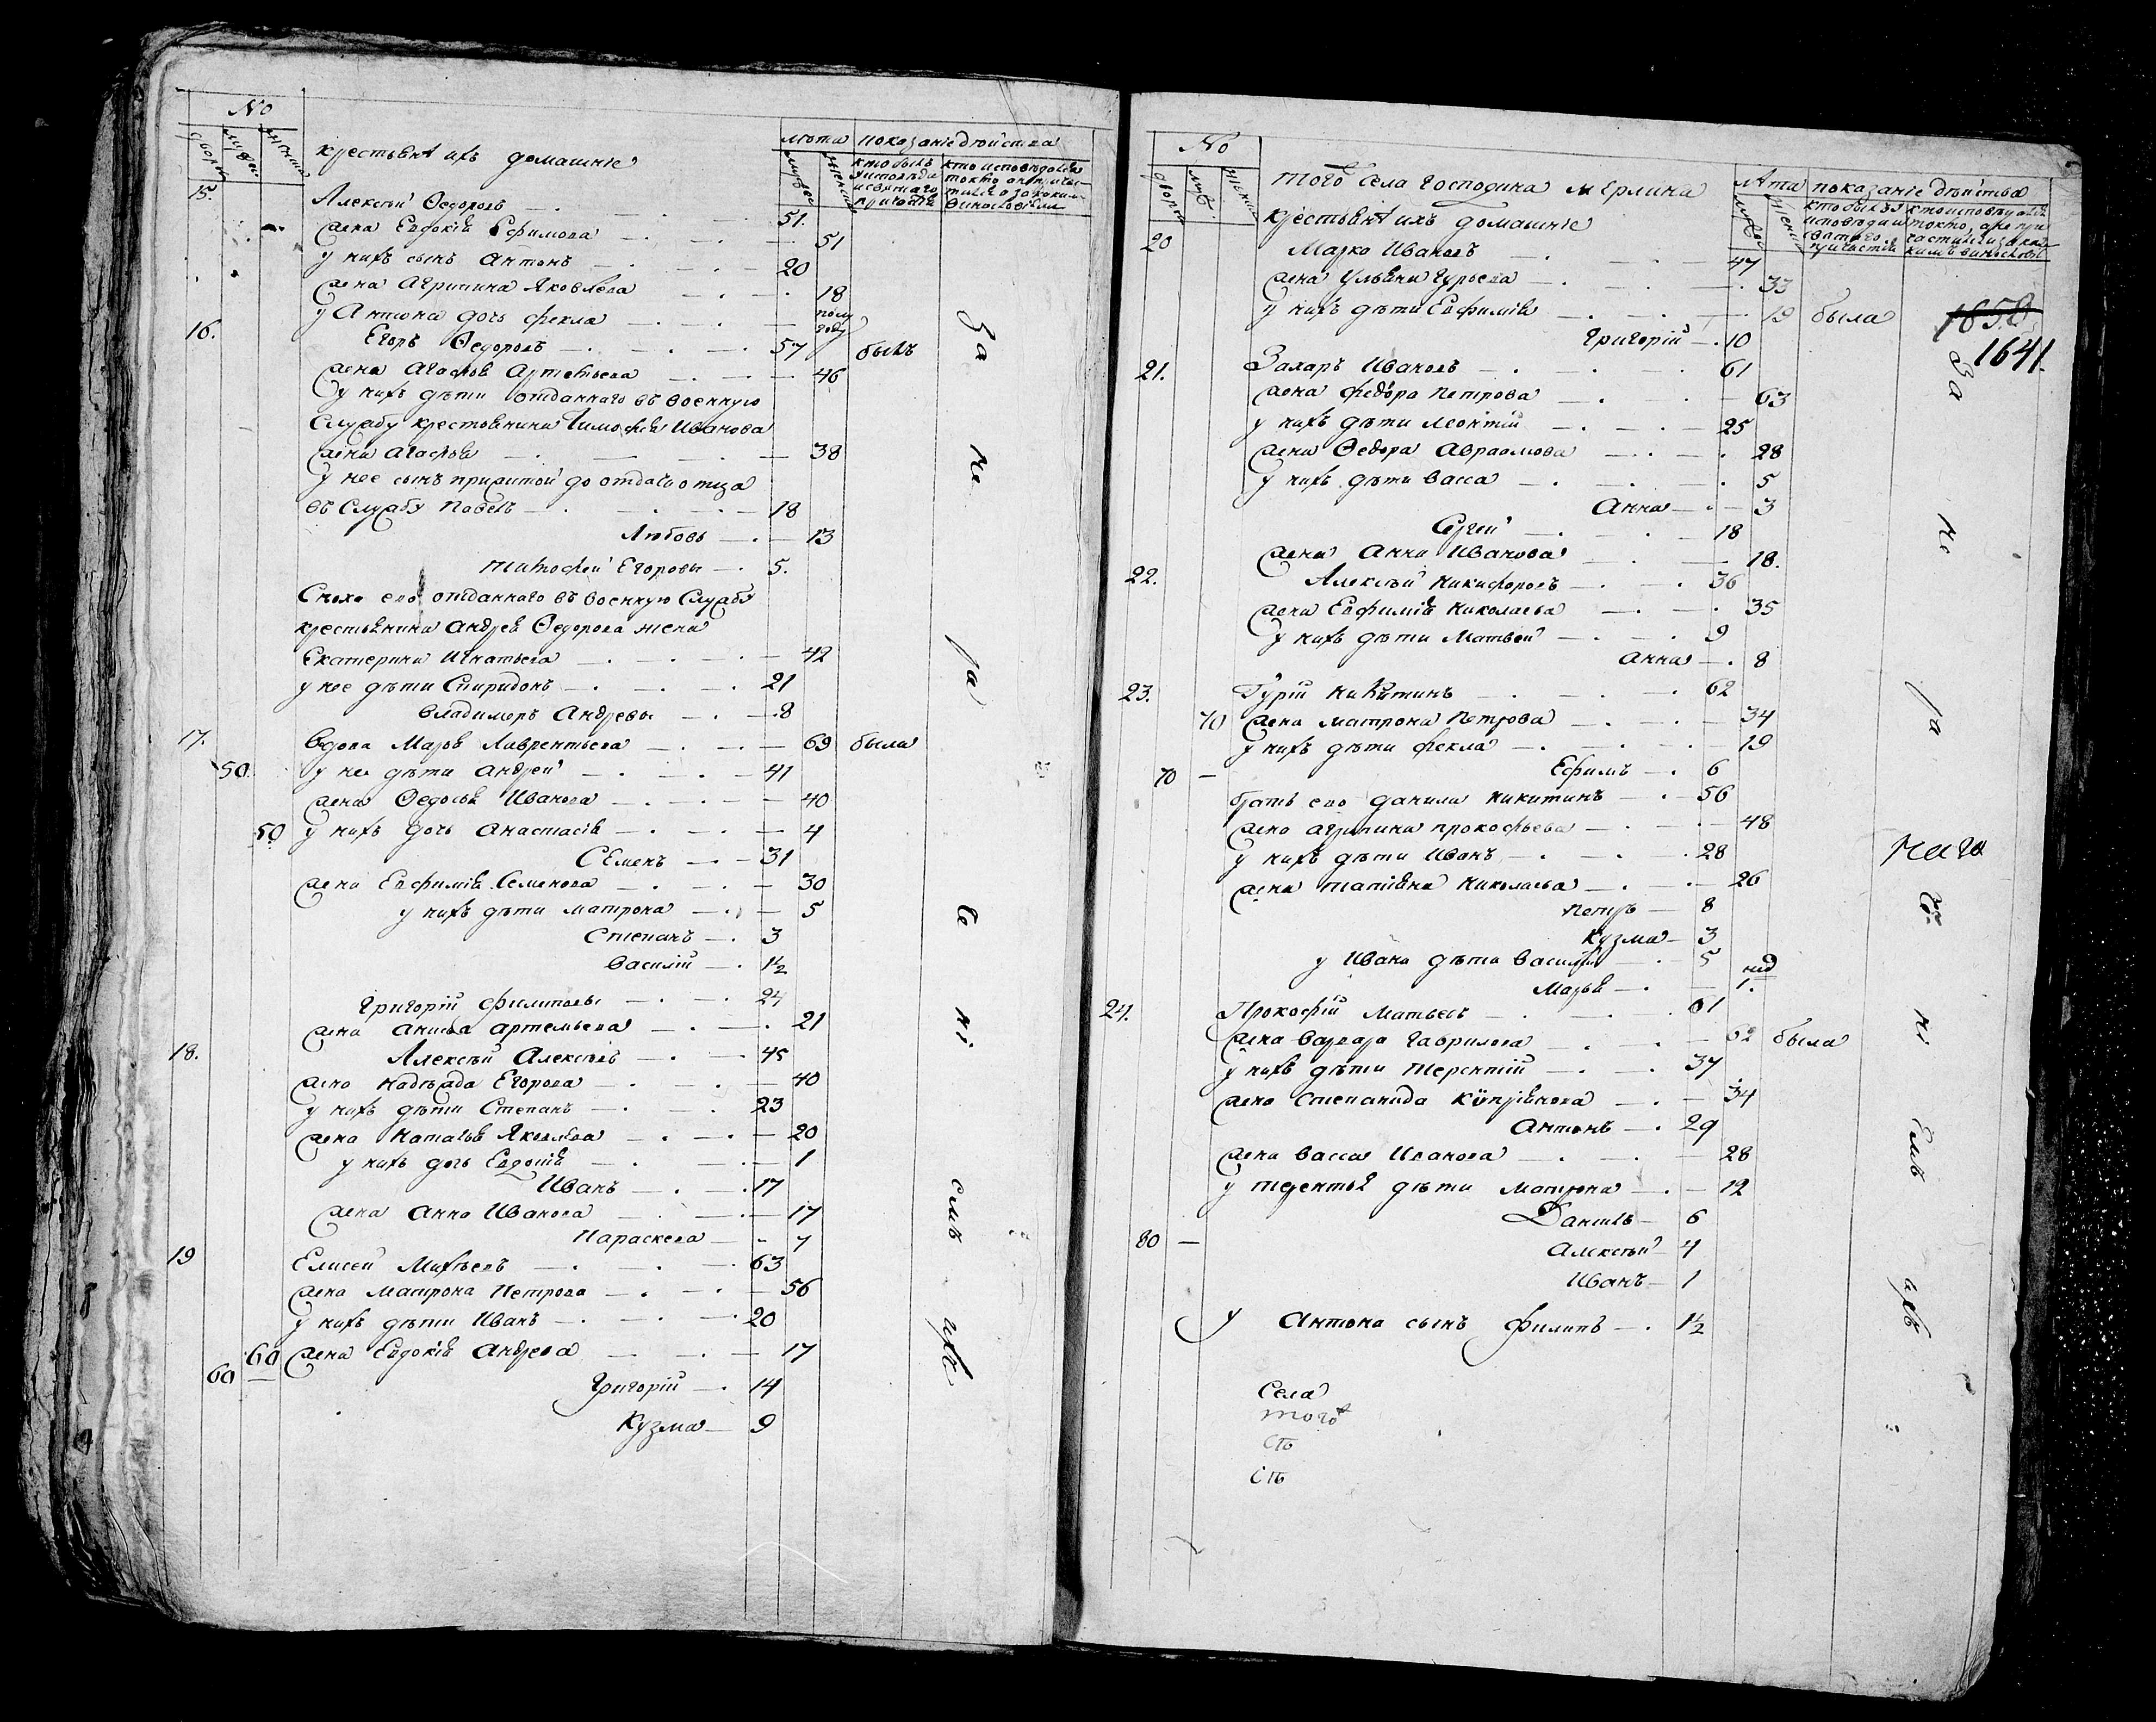 №
лѣта показаніе дѣйства
дворы мужск женска
крестьянѣ ихъ домашніе
мужска женска
кто былъ у исповѣди и святаго причастія
кто исповѣдался токмо а не причастился и за каким винословіем
15. Алексѣй Ѳедоровъ — 51.
жена Евдокія Ефимова — 51
у нихъ сынъ Антонъ — 20
жена Агрипина Яковлева — 18
у Антона дочь Фекла — полугоду
16. Егоръ Ѳедоровъ — 57 былъ
жена Агафья Артемьева — 46
у нихъ дѣти отданнаго въ военную
службу крестьянина Тимофея Иванова
жена Агафья — 38
у нее сынъ прижитой до отдачи отца
въ службу Павелъ — 18
Любовь — 13
Тимофей Егоровы — 5.
Сноха его отданнаго въ военную службу
крестьянина Андрея Ѳедорова жена
Екатерина Игнатьева — 42
у нее дѣти Спиридонъ — 21
Владимеръ Андреевы — 8
17. Вдова Марья Лаврентьева — 69 была
50. у нея дѣти Андрей — 41
жена Ѳедосья Иванова — 40
50 у нихъ дочь Анастасія — 4
Семенъ — 31
жена Евфимія Семенова — 30
у нихъ дѣти Матрона — 5
Степанъ — 3
Василій — 1½
Григорій Филиповы — 24
жена Анисья Артемьева — 21
18. Алексѣй Алексѣевъ — 45
жена Надежда Егорова — 40
у нихъ дѣти Степанъ — 23
жена Наталья Яковлева — 20
у нихъ дочь Евдокія — 1
Иванъ — 17
жена Анна Иванова — 17
Параскева — 7
19 Елисей Михѣевъ — 63
жена Матрона Петрова — 56
у нихъ дѣти Иванъ — 20
60 жена Евдокія Андреева — 17
60 — Григорій — 14
Кузма — 9
За не ра че ні емъ ихъ
№
дворы муж. женск
того села Господина Мерлина
лѣта показаніе дѣйства
крестьянѣ ихъ домашніе
мужеска женска
кто былъ у исповѣди и святаго причастія
кто исповѣдался токмо, а не причастился и за каким винословіем
20 Марко Ивановъ — 47
жена Ульяна Гурьева — 33
у нихъ дѣти Евфимія — 19 была
1858
Григорій — 10
1641.
21. Захаръ Ивановъ — 61
жена Федора Петрова — 63
у нихъ дѣти Леонтій — 25
жена Ѳедора Авраамова — 28
у нихъ дѣти Васса — 5
Анна — 3
Сергей — 18
жена Анна Иванова — 18.
22. Алексѣй Никифоровъ — 36
жена Евфимія Николаева — 35
у нихъ дѣти Матвей — 9
Анна — 8
23. Гурій Никитинъ — 62
70 жена Матрона Петрова — 34
у нихъ дѣти Фекла — 19
70 — Ефимъ — 6
братъ его Данила Никитинъ — 56
жена Агрипина Прокофьева — 48
у нихъ дѣти Иванъ — 28
жена Татіяна Николаева — 26
Петръ — 8
Кузма — 3
у Ивана дѣти Василій — 5
Марья — 1. нед
24. Прокофій Матвеевъ — 61
жена Варвара Гаврилова — 62 была
у нихъ дѣти Терентій — 37
жена Степанида Кипріянова — 34
Антонъ — 29
жена Васса Иванова — 28
у Терентья дѣти Матрона — 12
Данилъ — 6
80 — Алексѣй — 4
Иванъ — 1
у Антона сынъ Филипъ — 1½
За не ра че ні емъ ихъ
Села
того
сть
сть